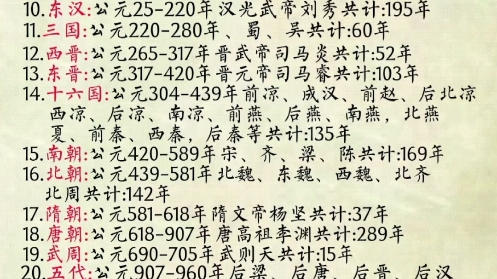 10.东汉:公元25-220年汉光武帝刘秀共计:195年
11.三国:公元220-280年、蜀、吴共计:60年
12.西晋:公元265-317年晋武帝司马炎共计:52年
13.东晋:公元317-420年晋元帝司马睿共计:103年
14.十六国:公元304-439年前凉、成汉、前赵、后北凉
西凉、后凉、南凉、前燕、后燕、南燕，北燕
夏、前秦、西秦，后秦等共计:135年
15.南朝:公元420-589年宋、齐、梁、陈共计:169年
16.北朝:公元439-581年北魏、东魏、西魏、北齐
北周共计:142年
17.隋朝:公元581-618年隋文帝杨坚共计:37年
18.唐朝:公元618-907年唐高祖李渊共计:289年
19.武周:公元690-705年武则天共计:15年
20.五代:公元907-960年后梁、后唐、后晋、后汉